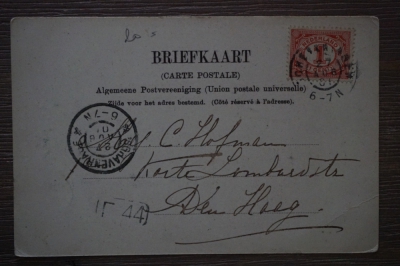 BRIEFKAART
(CARTE POSTALE)
Algemeene Postvereeniging (Union postale universelle)
Zijde voor het adres bestemd. (Côté réservé à l'adresse).
NEDERLAND
1
6-7N
'S GRAVENHAGE
6-7N
C. Hofman
Korte Lombardstr
Den Haag